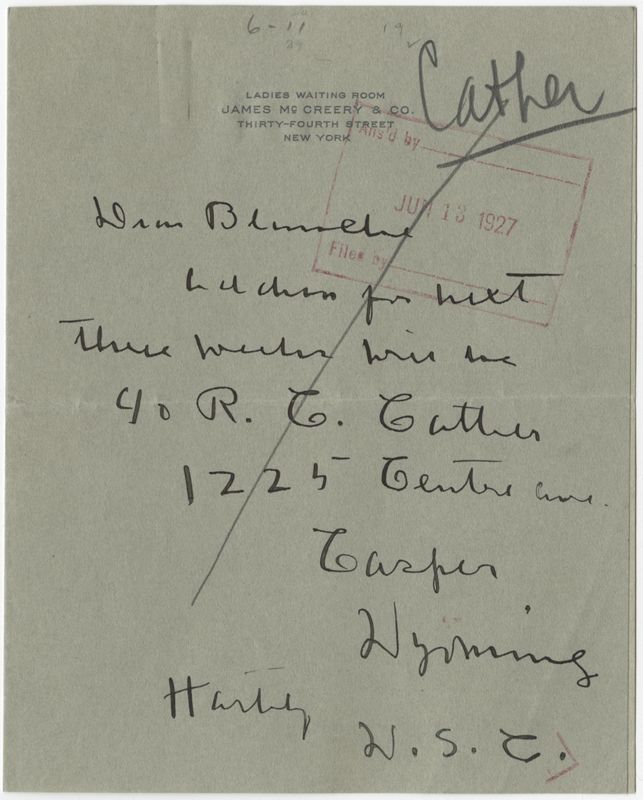 6-11
19
Cather
LADIES WAITING ROOM
JAMES Mc CREERY & CO.
THIRTY-FOURTH STREET
NEW YORK
Ans'd by
JUN 13 1927
Files by
Dear Blanche
Address for next
three weeks will be
c/o R. C. Cather
1225 Centre ave.
Casper
Wyoming
Hastily
W. S. C.